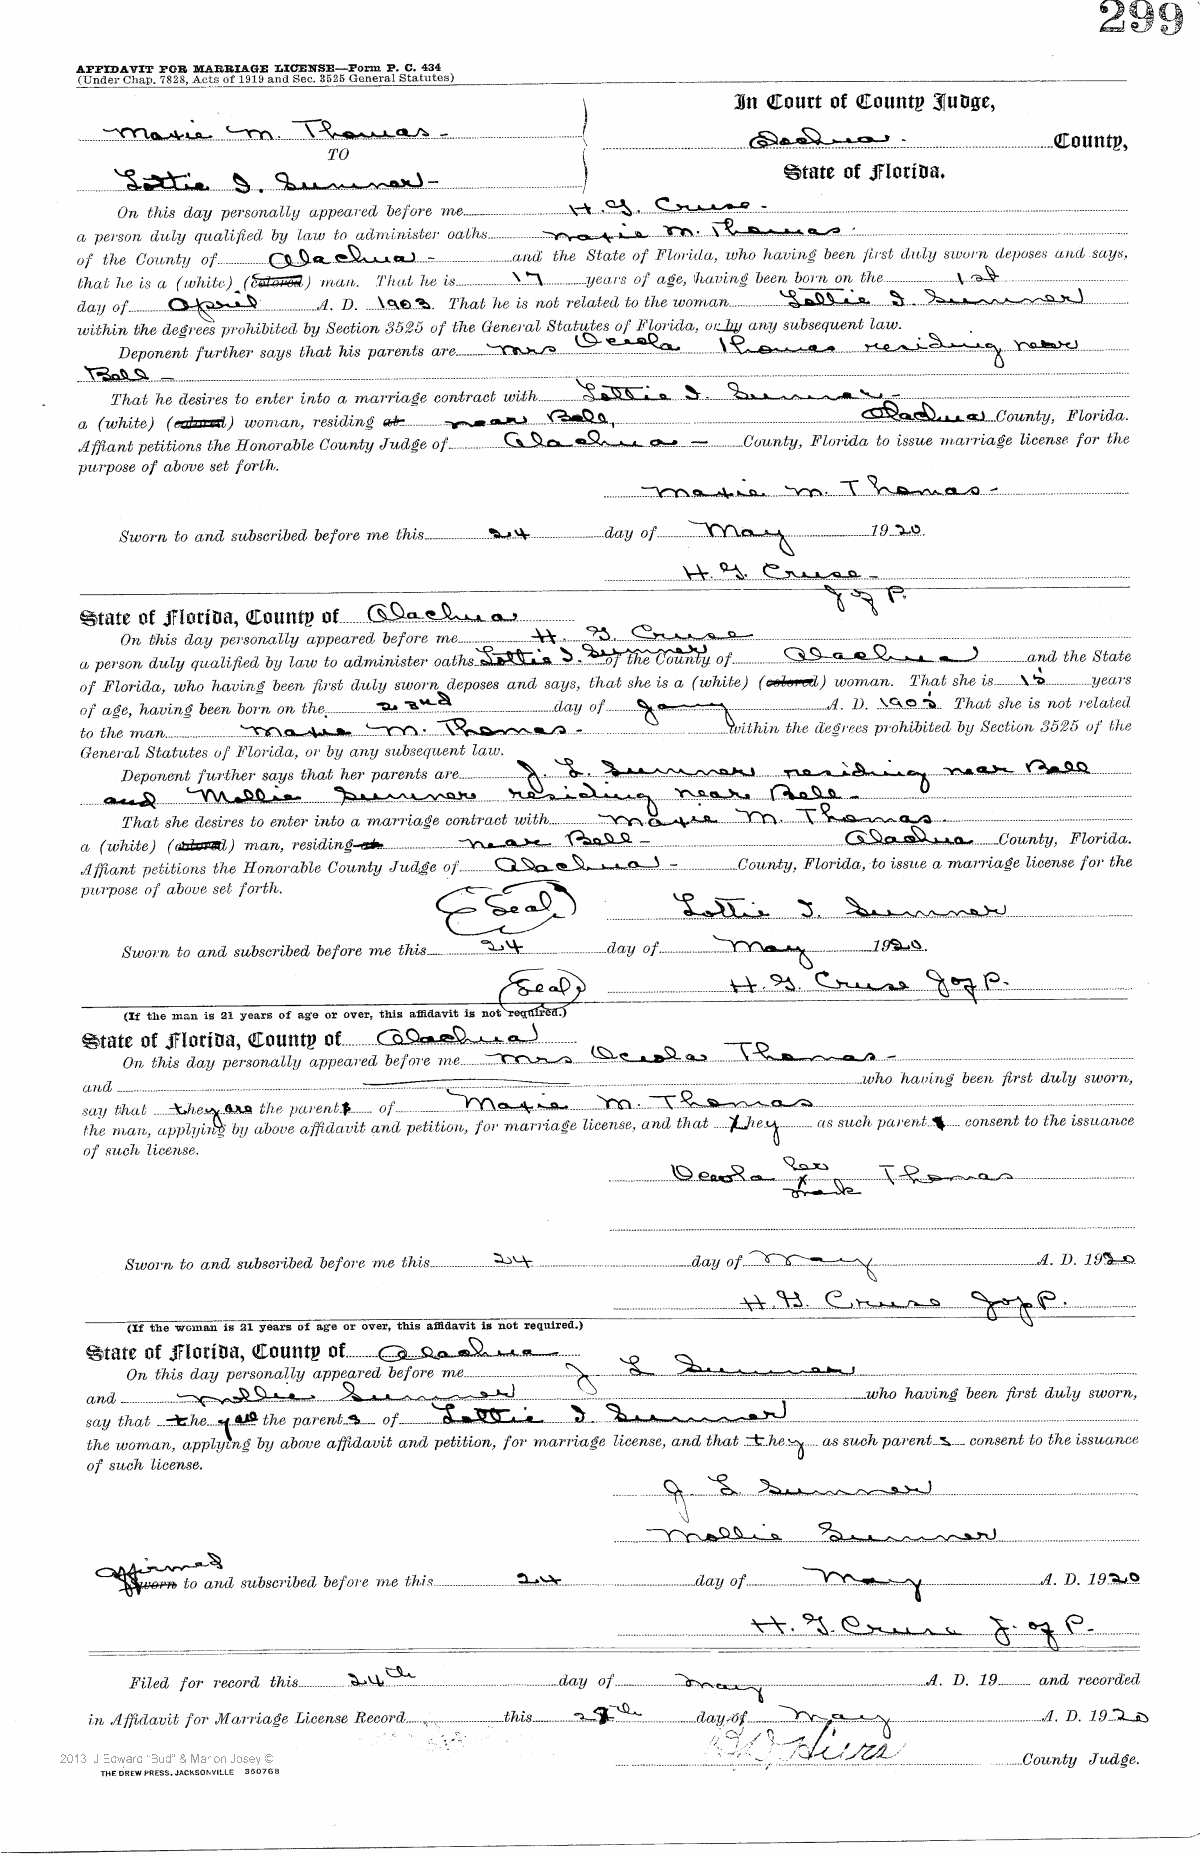 299
AFFIDAVIT FOR MARRIAGE LICENSE—Form P. C. 434
(Under Chap. 7828, Acts of 1919 and Sec. 3525 General Statutes)
In Court of County Judge,
Maxie M. Thomas -
Alachua. County,
TO
State of Florida.
Lottie I. Sumner -
On this day personally appeared before me H. G. Cruse -
a person duly qualified by law to administer oaths Maxie M. Thomas -
of the County of Alachua - and the State of Florida, who having been first duly sworn deposes and says,
that he is a (white) (colored) man. That he is 17 years of age, having been born on the 1st
day of April A. D. 1903. That he is not related to the woman Lottie I. Sumner
within the degrees prohibited by Section 3525 of the General Statutes of Florida, or by any subsequent law.
Deponent further says that his parents are Mrs Oceola Thomas residing near
Bell -
That he desires to enter into a marriage contract with Lottie I. Sumner -
a (white) (colored) woman, residing at near Bell, Alachua County, Florida.
Affiant petitions the Honorable County Judge of Alachua - County, Florida to issue marriage license for the
purpose of above set forth.
Maxie M. Thomas -
Sworn to and subscribed before me this 24 day of May 1920.
H. G. Cruse -
J of P.
State of Florida, County of Alachua
On this day personally appeared before me H. G. Cruse
a person duly qualified by law to administer oaths Lottie I. Sumner of the County of Alachua and the State
of Florida, who having been first duly sworn deposes and says, that she is a (white) (colored) woman. That she is 15 years
of age, having been born on the 23rd day of Jany A. D. 1905 That she is not related
to the man Maxie M. Thomas - within the degrees prohibited by Section 3525 of the
General Statutes of Florida, or by any subsequent law.
Deponent further says that her parents are J. L. Sumner residing near Bell
and Mollie Sumner residing near Bell -
That she desires to enter into a marriage contract with Maxie M. Thomas.
a (white) (colored) man, residing at near Bell - Alachua County, Florida.
Affiant petitions the Honorable County Judge of Alachua - County, Florida, to issue a marriage license for the
purpose of above set forth.
(Seal) Lottie I. Sumner
Sworn to and subscribed before me this 24 day of May 1920.
(Seal) H. G. Cruse J of P.
(If the man is 21 years of age or over, this affidavit is not required.)
State of Florida, County of Alachua
On this day personally appeared before me Mrs Oceola Thomas -
and who having been first duly sworn,
say that they are the parents of Maxie M. Thomas
the man, applying by above affidavit and petition, for marriage license, and that they as such parent consent to the issuance
of such license.
Oceola her x mark Thomas
Sworn to and subscribed before me this 24 day of May A. D. 1920
H. G. Cruse J of P.
(If the woman is 21 years of age or over, this affidavit is not required.)
State of Florida, County of Alachua
On this day personally appeared before me J L Sumner
and Mollie Sumner who having been first duly sworn,
say that they are the parents of Lottie I. Sumner
the woman, applying by above affidavit and petition, for marriage license, and that they as such parents consent to the issuance
of such license.
J L Sumner
Mollie Sumner
affirmed
Sworn to and subscribed before me this 24 day of May A. D. 1920
H. G. Cruse J. of P.
Filed for record this 24th day of May A. D. 19 and recorded
in Affidavit for Marriage License Record this 28th day of May A. D. 1920
Hiers County Judge.
2013 J Edward "Bud" & Marion Josey ©
THE DREW PRESS, JACKSONVILLE 350768